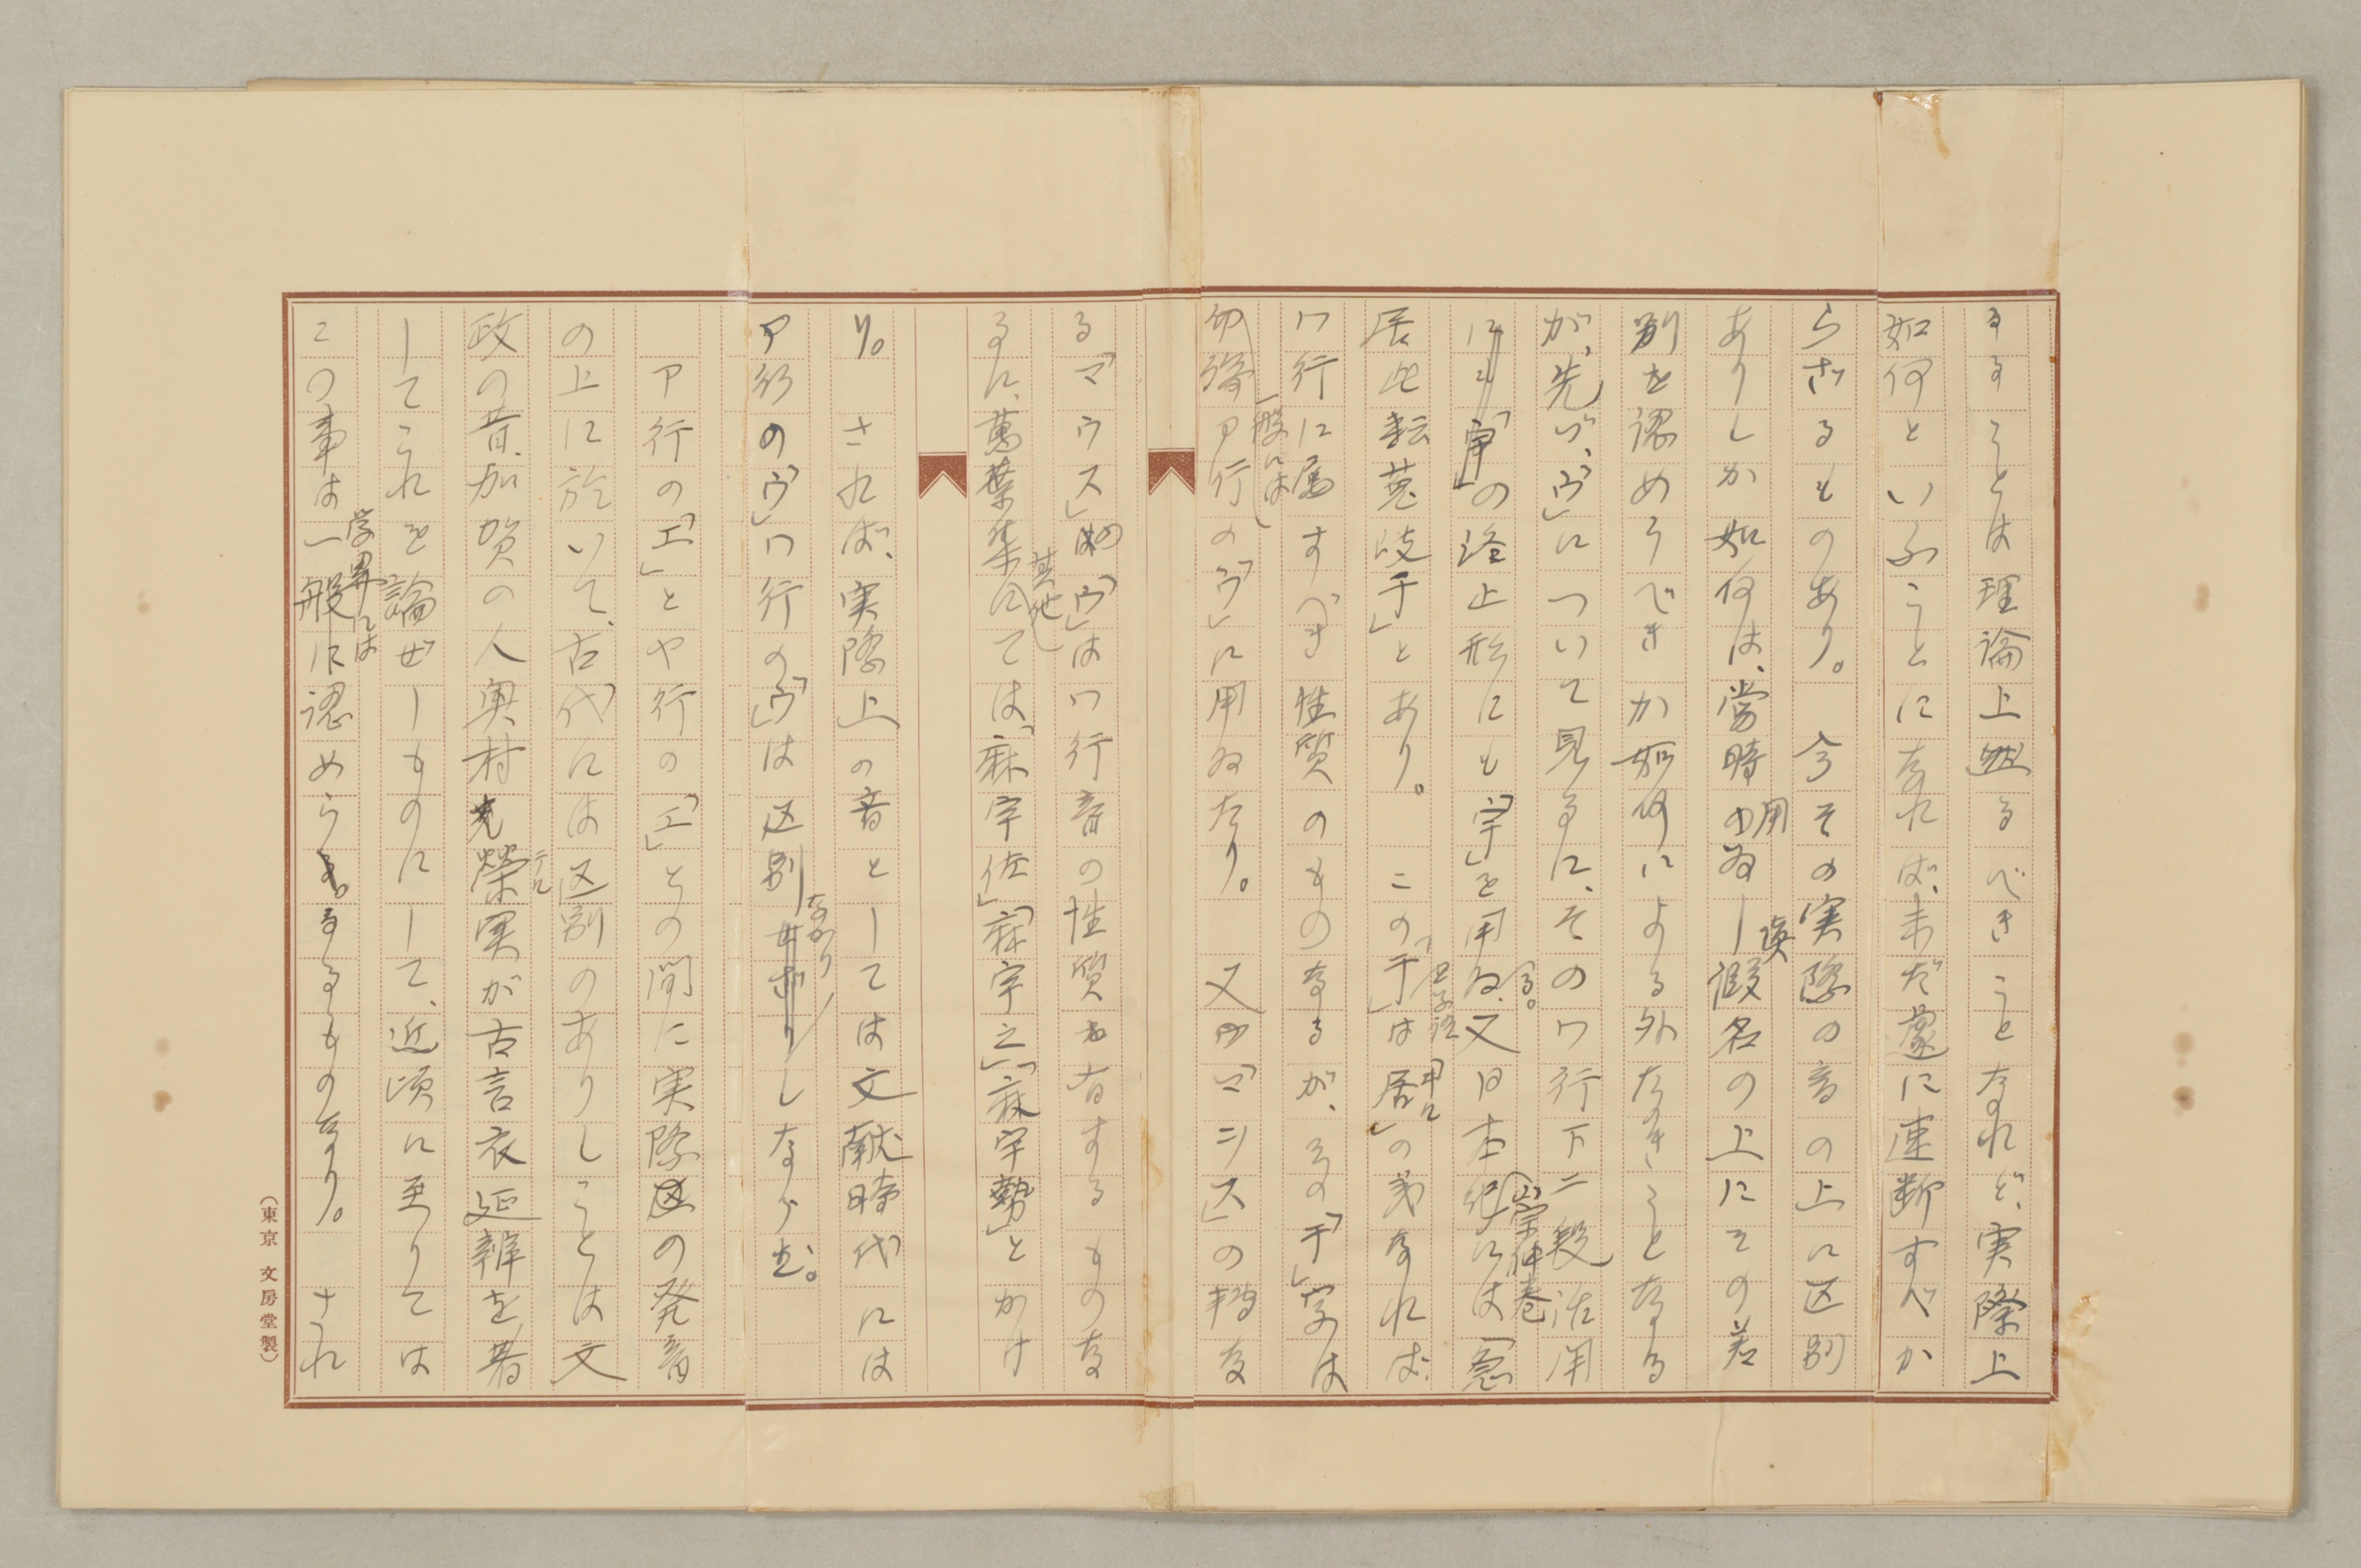 することは理論上然るべきことなれど、実際上
如何といふことになれば、未だ遽に速断すべか
らざるものあり。今その実際の音の上に区別
ありしか如何は、当時の用ゐし漢仮名の上にその差
別を認めうべきか如何による外なきことなる
が、先づ、「ウ」について見るに、そのワ行下二段活用
の終止形にも「宇」を用ゐる。又日本紀(崇神巻)には「急
居此云菟岐于」とあり。この「于」は「居」の義なれば、
ワ行に属すべき性質のものなるが、その「于」字は
一般には
ア行の「ウ」に用ゐたり。又「マヰス」の転な
る「マウス」の「ウ」はワ行音の性質を有するものな
るに、萬葉集其他にては、「麻宇佐」「麻宇之」「麻宇勢」とかけ
り。されば、実際上の音としては文献時代には
ア行の「ウ」ワ行の「ウ」は区別なかりしならむ。
ア行の「エ」とヤ行の「エ」との間に実際の発音
の上に於いて、古代には区別のありしことは文
政の昔、加賀の人奥村栄実が古言衣延辨を著
してこれを論ぜしものにして、近頃に至りては
この事は学界には一般に認めらるるものなり。され
(東京 文房堂製)